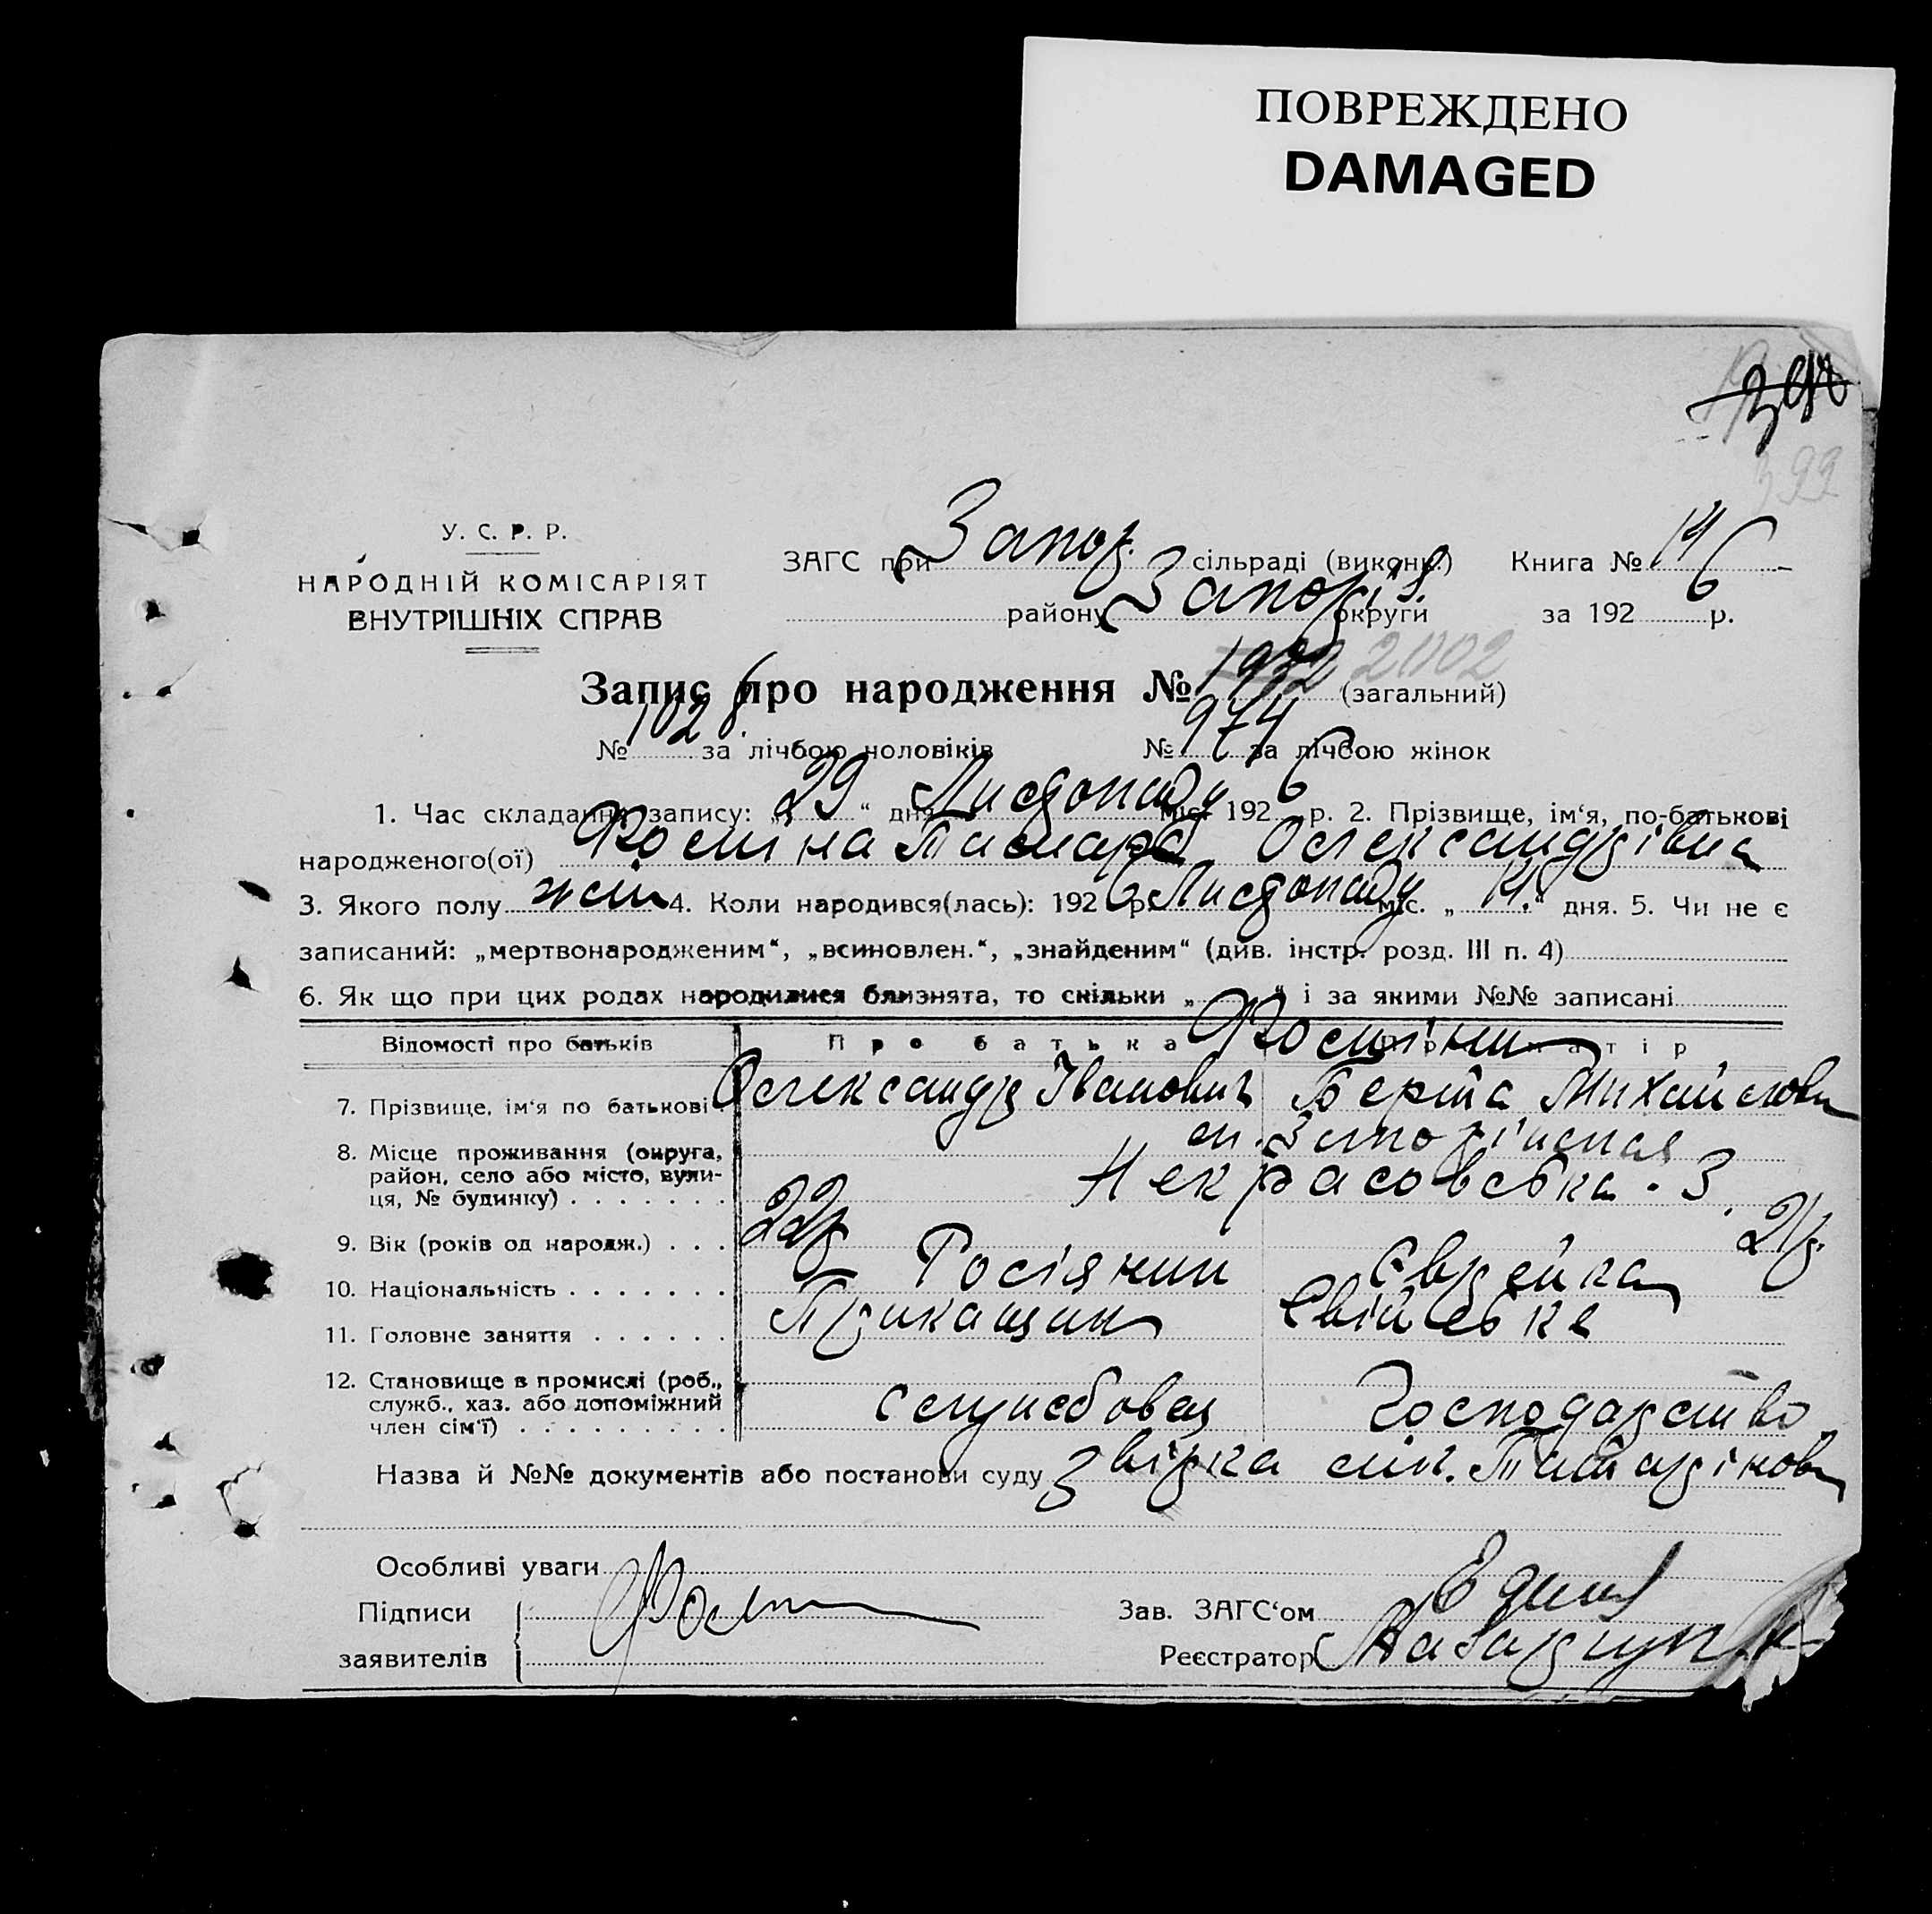 ПОВРЕЖДЕНО
DAMAGED
399
У. С. Р. Р.
НАРОДНІЙ КОМІСАРІЯТ
ВНУТРІШНІХ СПРАВ
ЗАГС при Запор. сільраді (виконк.) Книга № 14
району Запоріз округи за 1926 р.
Запис про народження № 2002 (загальний)
№ 1028 за лічбою чоловіків № 974 за лічбою жінок
1. Час складання запису: „29“ дня Листопаду міс. 1926 р. 2. Прізвище, ім‘я, по-батькові
народженого(ої) Фостіна Тамара Олександрівна
3. Якого полу жін 4. Коли народився(лась): 1926 р. Листопаду міс. „14.“ дня. 5. Чи не є
записаний: „мертвонародженим“, „всиновлен.“, „знайденим“ (див. інстр. розд. III п. 4)
6. Як що при цих родах народилися близнята, то скільки „ “ і за якими №№ записані
Відомості про батьків Про батька Про матір
Фостіни
7. Прізвище, ім‘я по батькові. Олександр Іванович Берта Михайловн
8. Місце проживання (округа, район, село або місто, вулиця, № будинку)
Некрасовська. 3
9. Вік (років од народж.) 22р 21р.
10. Національність Росіянин Єврейка
11. Головне заняття Прикащик Свійська
12. Становище в промислі (роб., служб., хаз. або допоміжний член сім‘ї) служебовец Господарство
Назва й №№ документів або постанови суду звірка
Особливі уваги
Підписи
заявителів
Зав. ЗАГС‘ом
Реєстратор